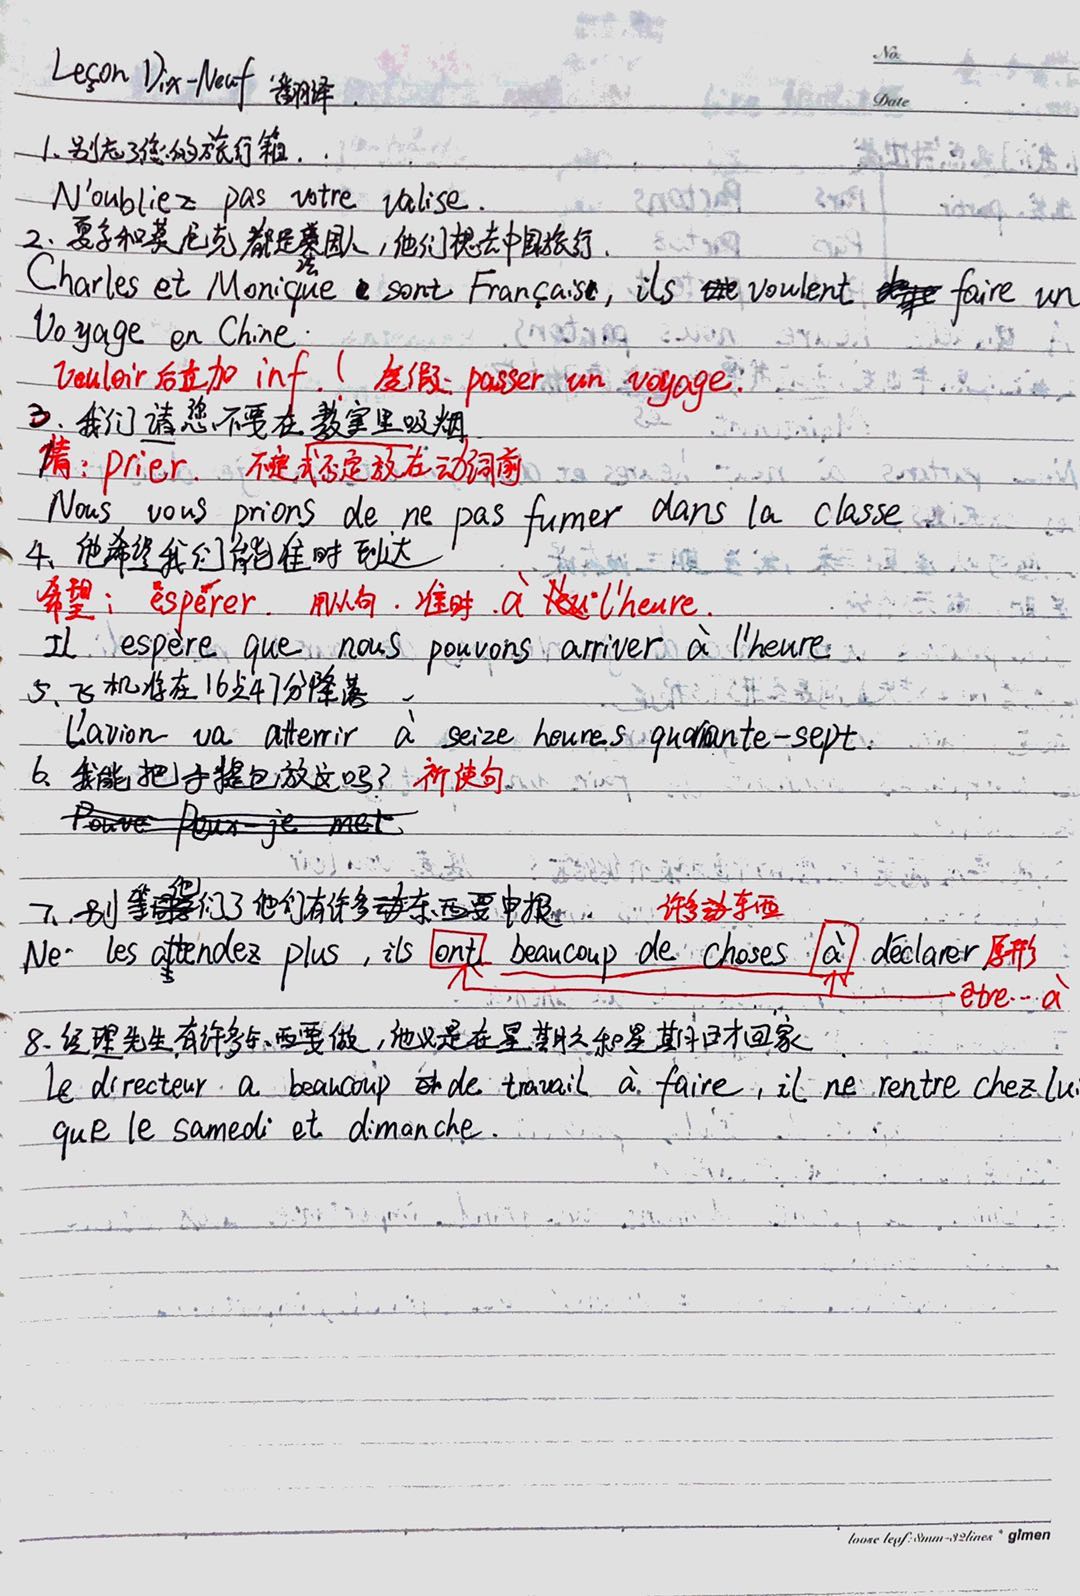 No.
Leçon Dix-Neuf 翻译.
Date
1. 别忘了您的旅行箱.
N'oubliez pas votre valise.
2. 夏尔和莫尼克都是法国人,他们想去中国旅行.
Charles et Monique sont Français, ils voulent faire un
Voyage en Chine.
Vouloir后直加 inf.! 度假: passer un voyage.
3. 我们请您不要在教室里吸烟
请: prier. 不定式否定放在动词前
Nous vous prions de ne pas fumer dans la classe.
4. 他希望我们能准时到达
希望: espérer. 用从句. 准时. à l'heure.
Il espère que nous pouvons arriver à l'heure.
5. 飞机将在16点47分降落
L'avion va atterrir à seize heures quarante-sept.
6. 我能把手提包放这吗? 祈使句
Peux-je met
7. 别等他们了他们有许多东西要申报. 许多东西
Ne les attendez plus, ils ont beaucoup de choses à déclarer 原形
être... à
8. 经理先生有许多东西要做,他只是在星期六和星期日才回家.
Le directeur a beaucoup de travail à faire, il ne rentre chez lui
que le samedi et dimanche.
loose leaf: 8mm-32lines * gimen